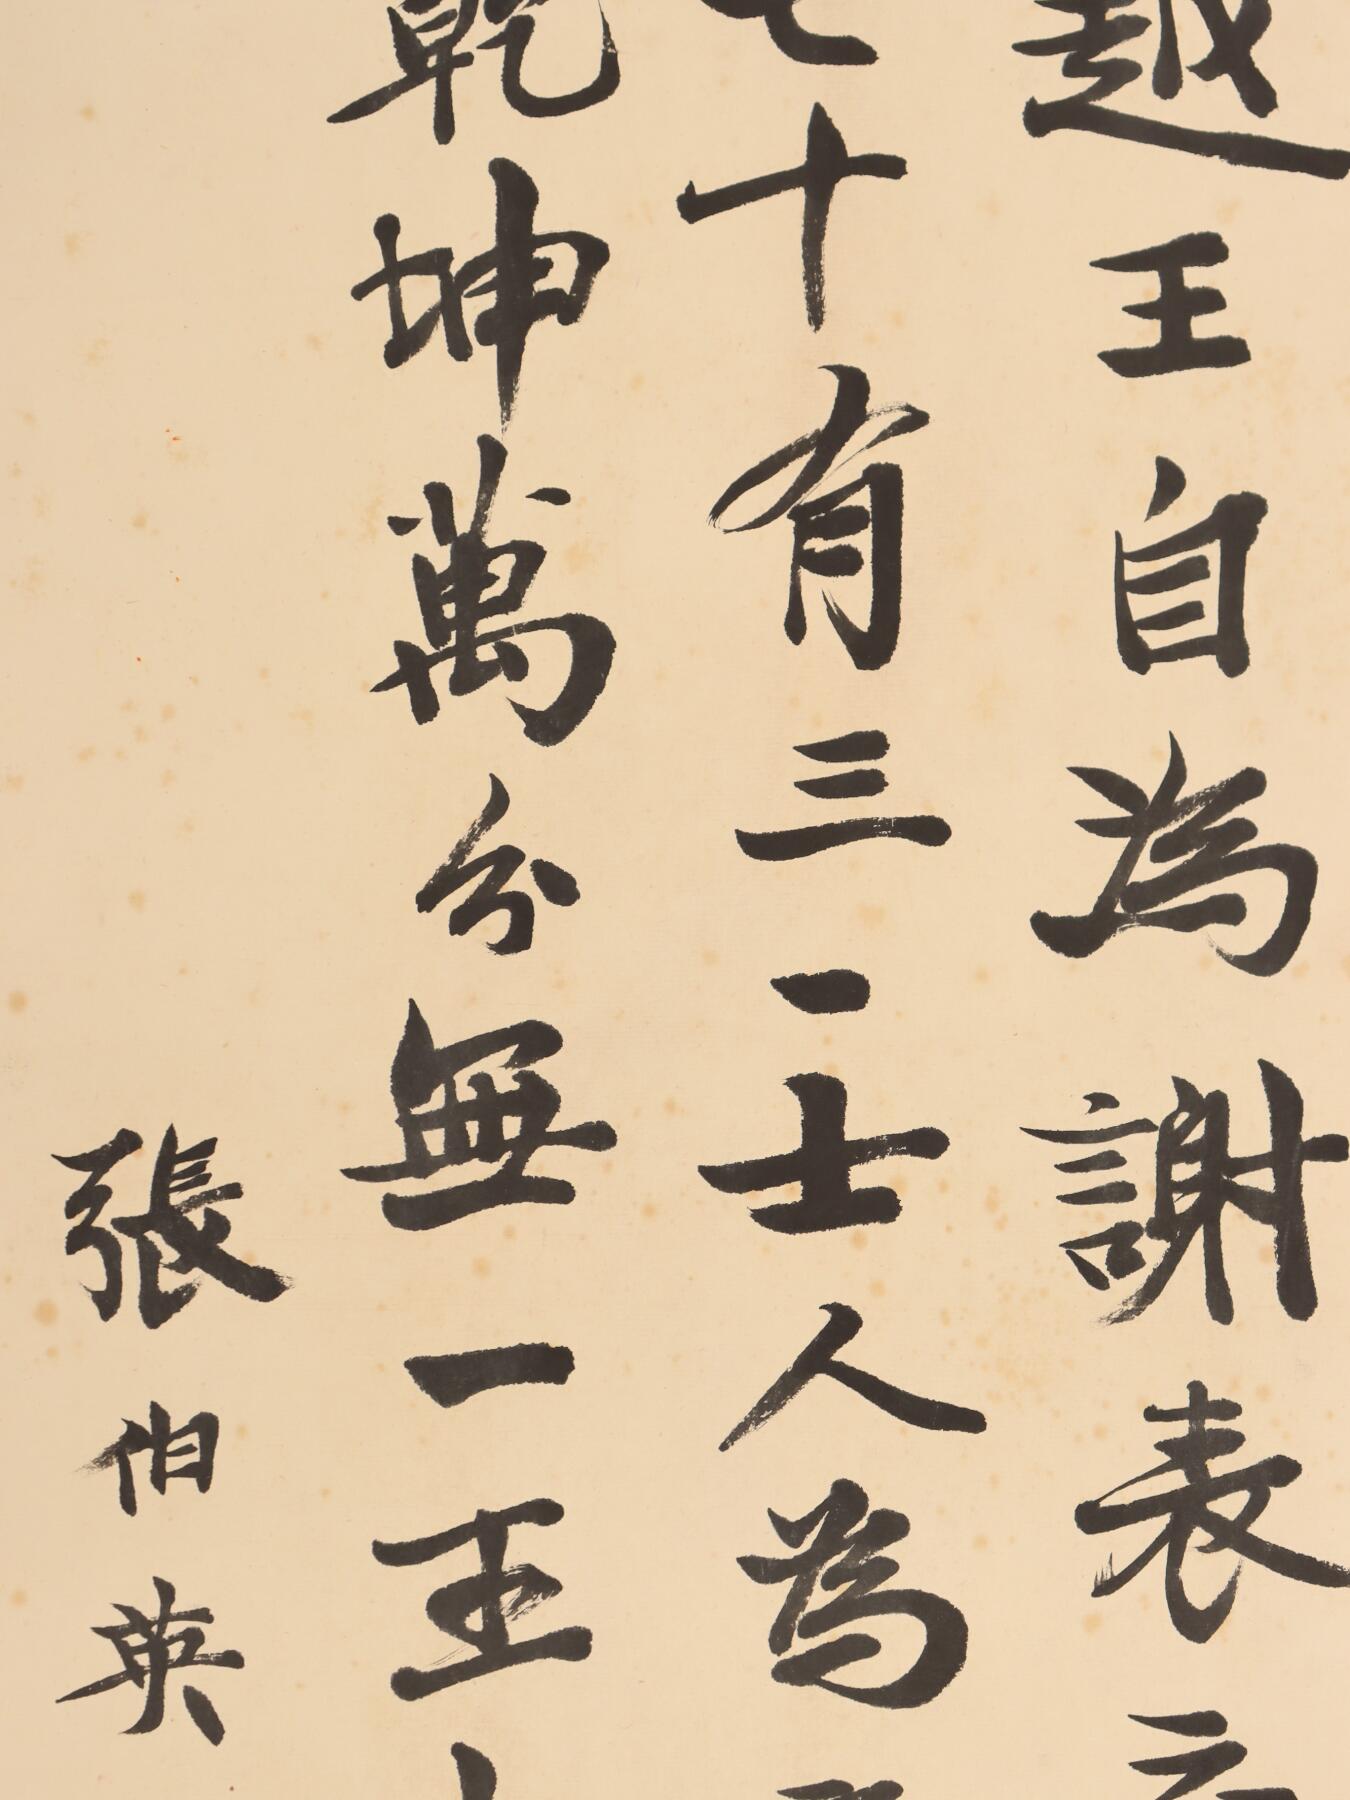 越王自為謝表云
七十有三一士人為
乾坤萬分無一王
張伯英